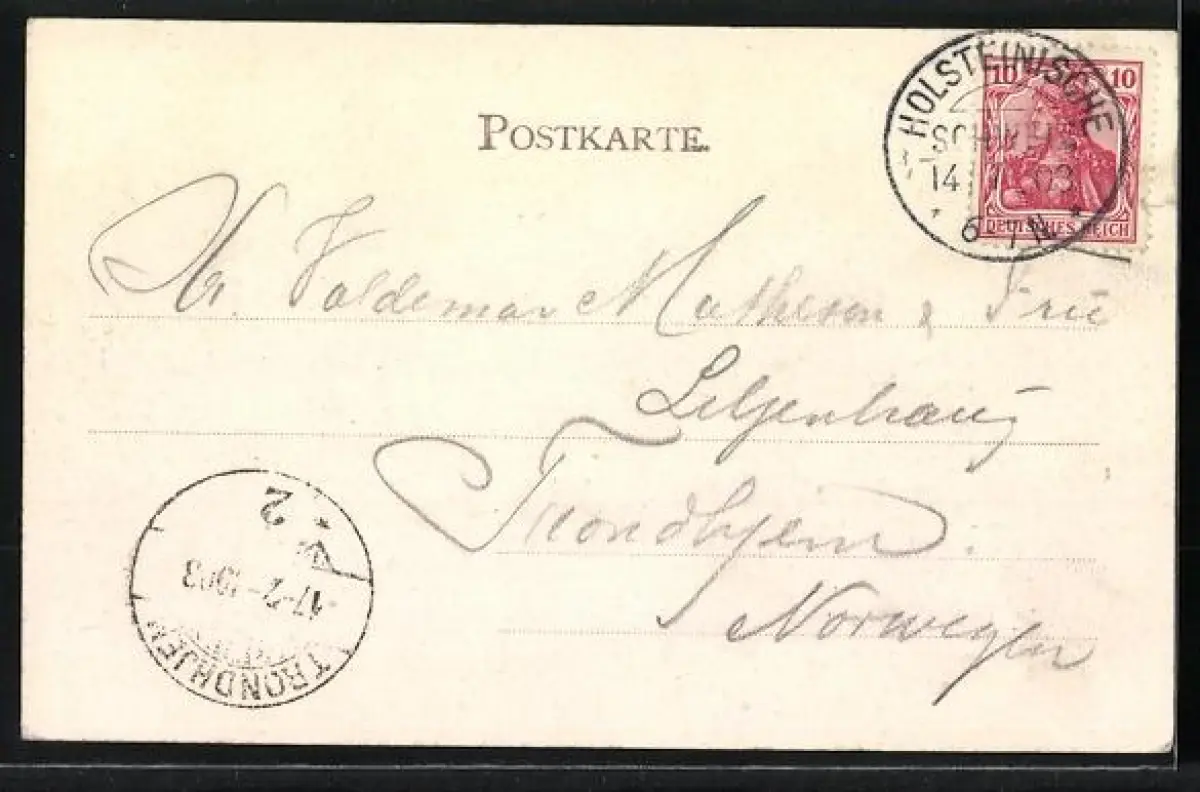 POSTKARTE.
HOLSTEINISCHE
SCHWEIZ
14 03
6-7N.
10 10
DEUTSCHES REICH
Hr. Valdemar Mathesen & Frue
Trondhjem.
Norwegen
2
17-2-1903
TRONDHJEM